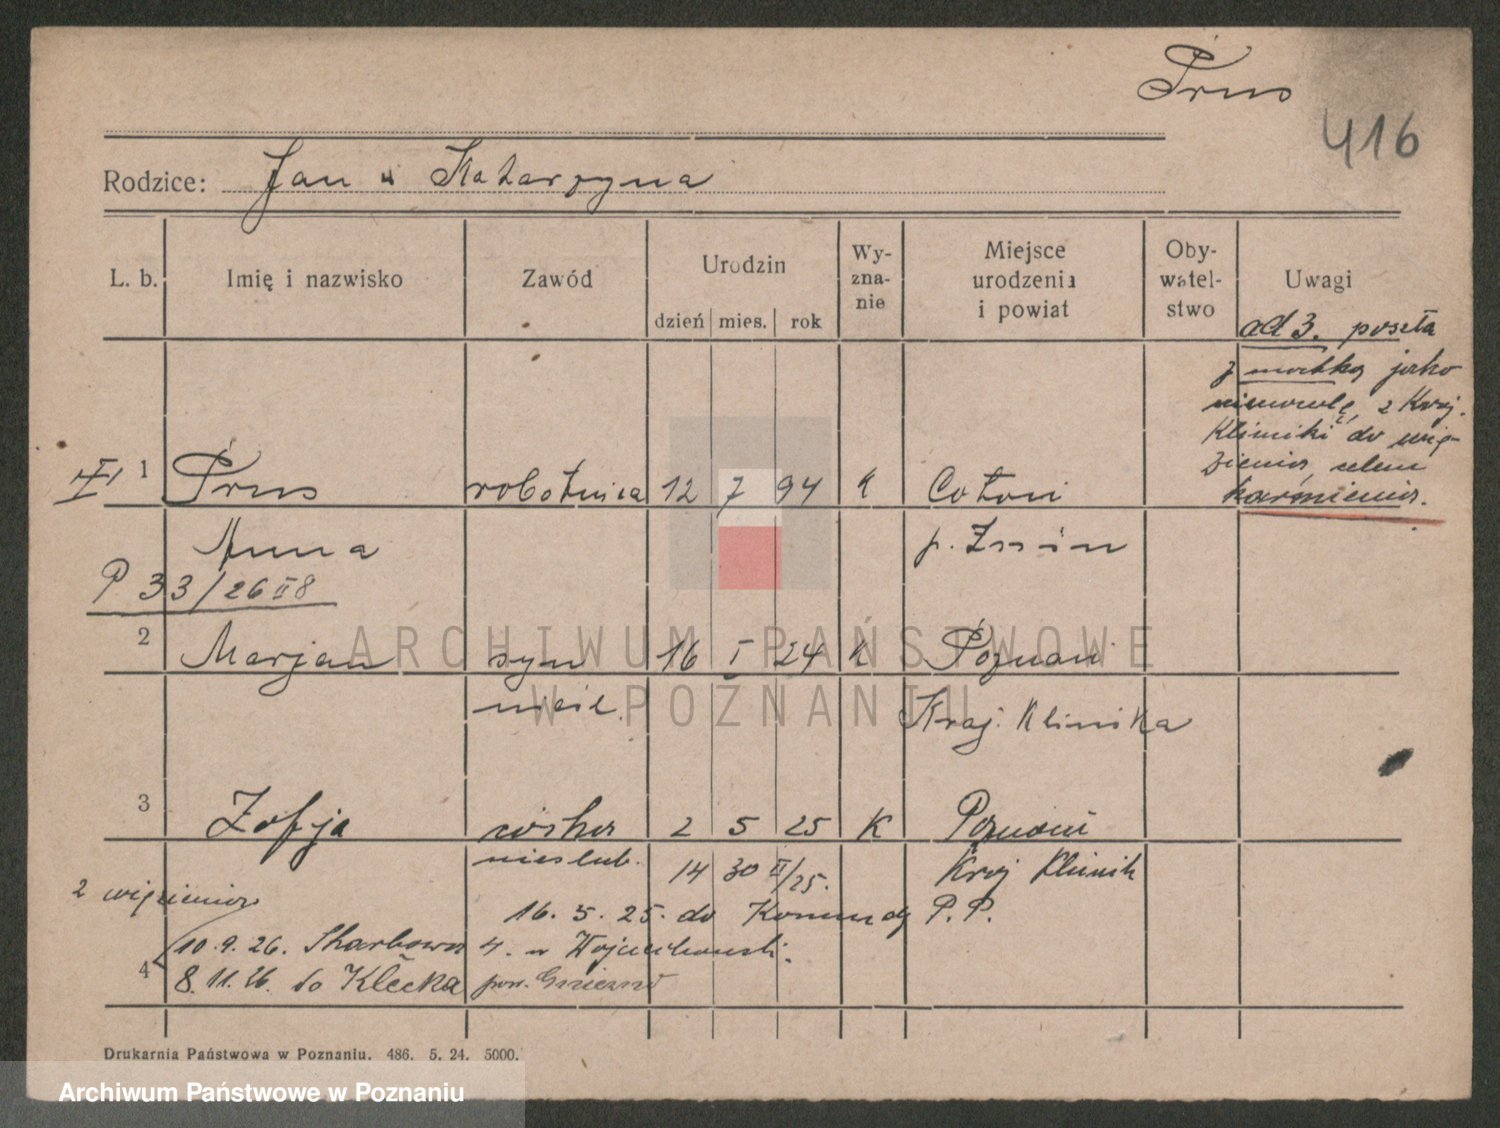 Prus
416
Rodzice: Jan u Katarzyna
L. b. Imię i nazwisko Zawód Urodzin dzień mies. rok Wy-zna-nie Miejsce urodzenia i powiat Oby-watel-stwo Uwagi
ad 3. poszła
z matką jako
niemowlę z Kraj.
Kliniki do wię-
zienia celem
karmienia.
VI 1 Prus robotnica 12 7 94 k Cotoń
Anna p. Żnin
P 33/26 II 8
2 Marjan syn 16 I 24 k Poznań
nieśl. Kraj. Klinika
3 Zofja córka 2 5 25 K Poznań
nieślub. 14 30 II/25. Kraj Klinik
z więzienia 16. 5. 25. do Komendy P. P.
10.9.26. Skarbowa 4. u Wojciechowski.
4 8.11.26. do Klecka pow. Gniezno
Drukarnia Państwowa w Poznaniu. 486. 5. 24. 5000.
ARCHIWUM PAŃSTWOWE
W POZNANIU
Archiwum Państwowe w Poznaniu